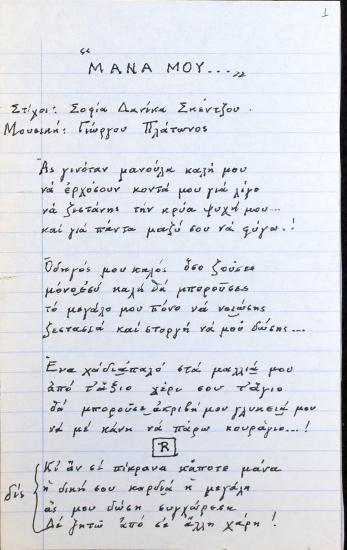 1
“ ΜΑΝΑ ΜΟΥ... „
Στίχοι: Σοφία Δανίκα Σκέντζου.
Μουσική: Γιώργου Πλάτωνος
Ἄς γινόταν μανούλα καλή μου
νά ἐρχόσουν κοντά μου γιά λίγο
νά ζεστάνης τήν κρύα ψυχή μου...
καί γιά πάντα μαζύ σου νά φύγω.!
Ὁδηγός μου καλός ὅσο ζοῦσες
μόνο ἐσύ καλή θά μποροῦσες
τό μεγάλο μου πόνο νά νοιώσης
ζεστασιά καί στοργή νά μοῦ δώσης...
Ἕνα χάδι ἁπαλό στά μαλλιά μου
ἀπό τ' ἄξιο χέρι σου τ' ἅγιο
θά μποροῦσε ἀκριβή μου γλυκειά μου
νά μέ κάνη νά πάρω κουράγιο...!
R
δίς
Κι' ἄν σέ πίκρανα κάποτε μάνα
ἡ δική σου καρδιά ἡ μεγάλη
ἄς μου δώση συγχώρεση
Δέ ζητῶ ἀπό σέ ἄλλη χάρη!